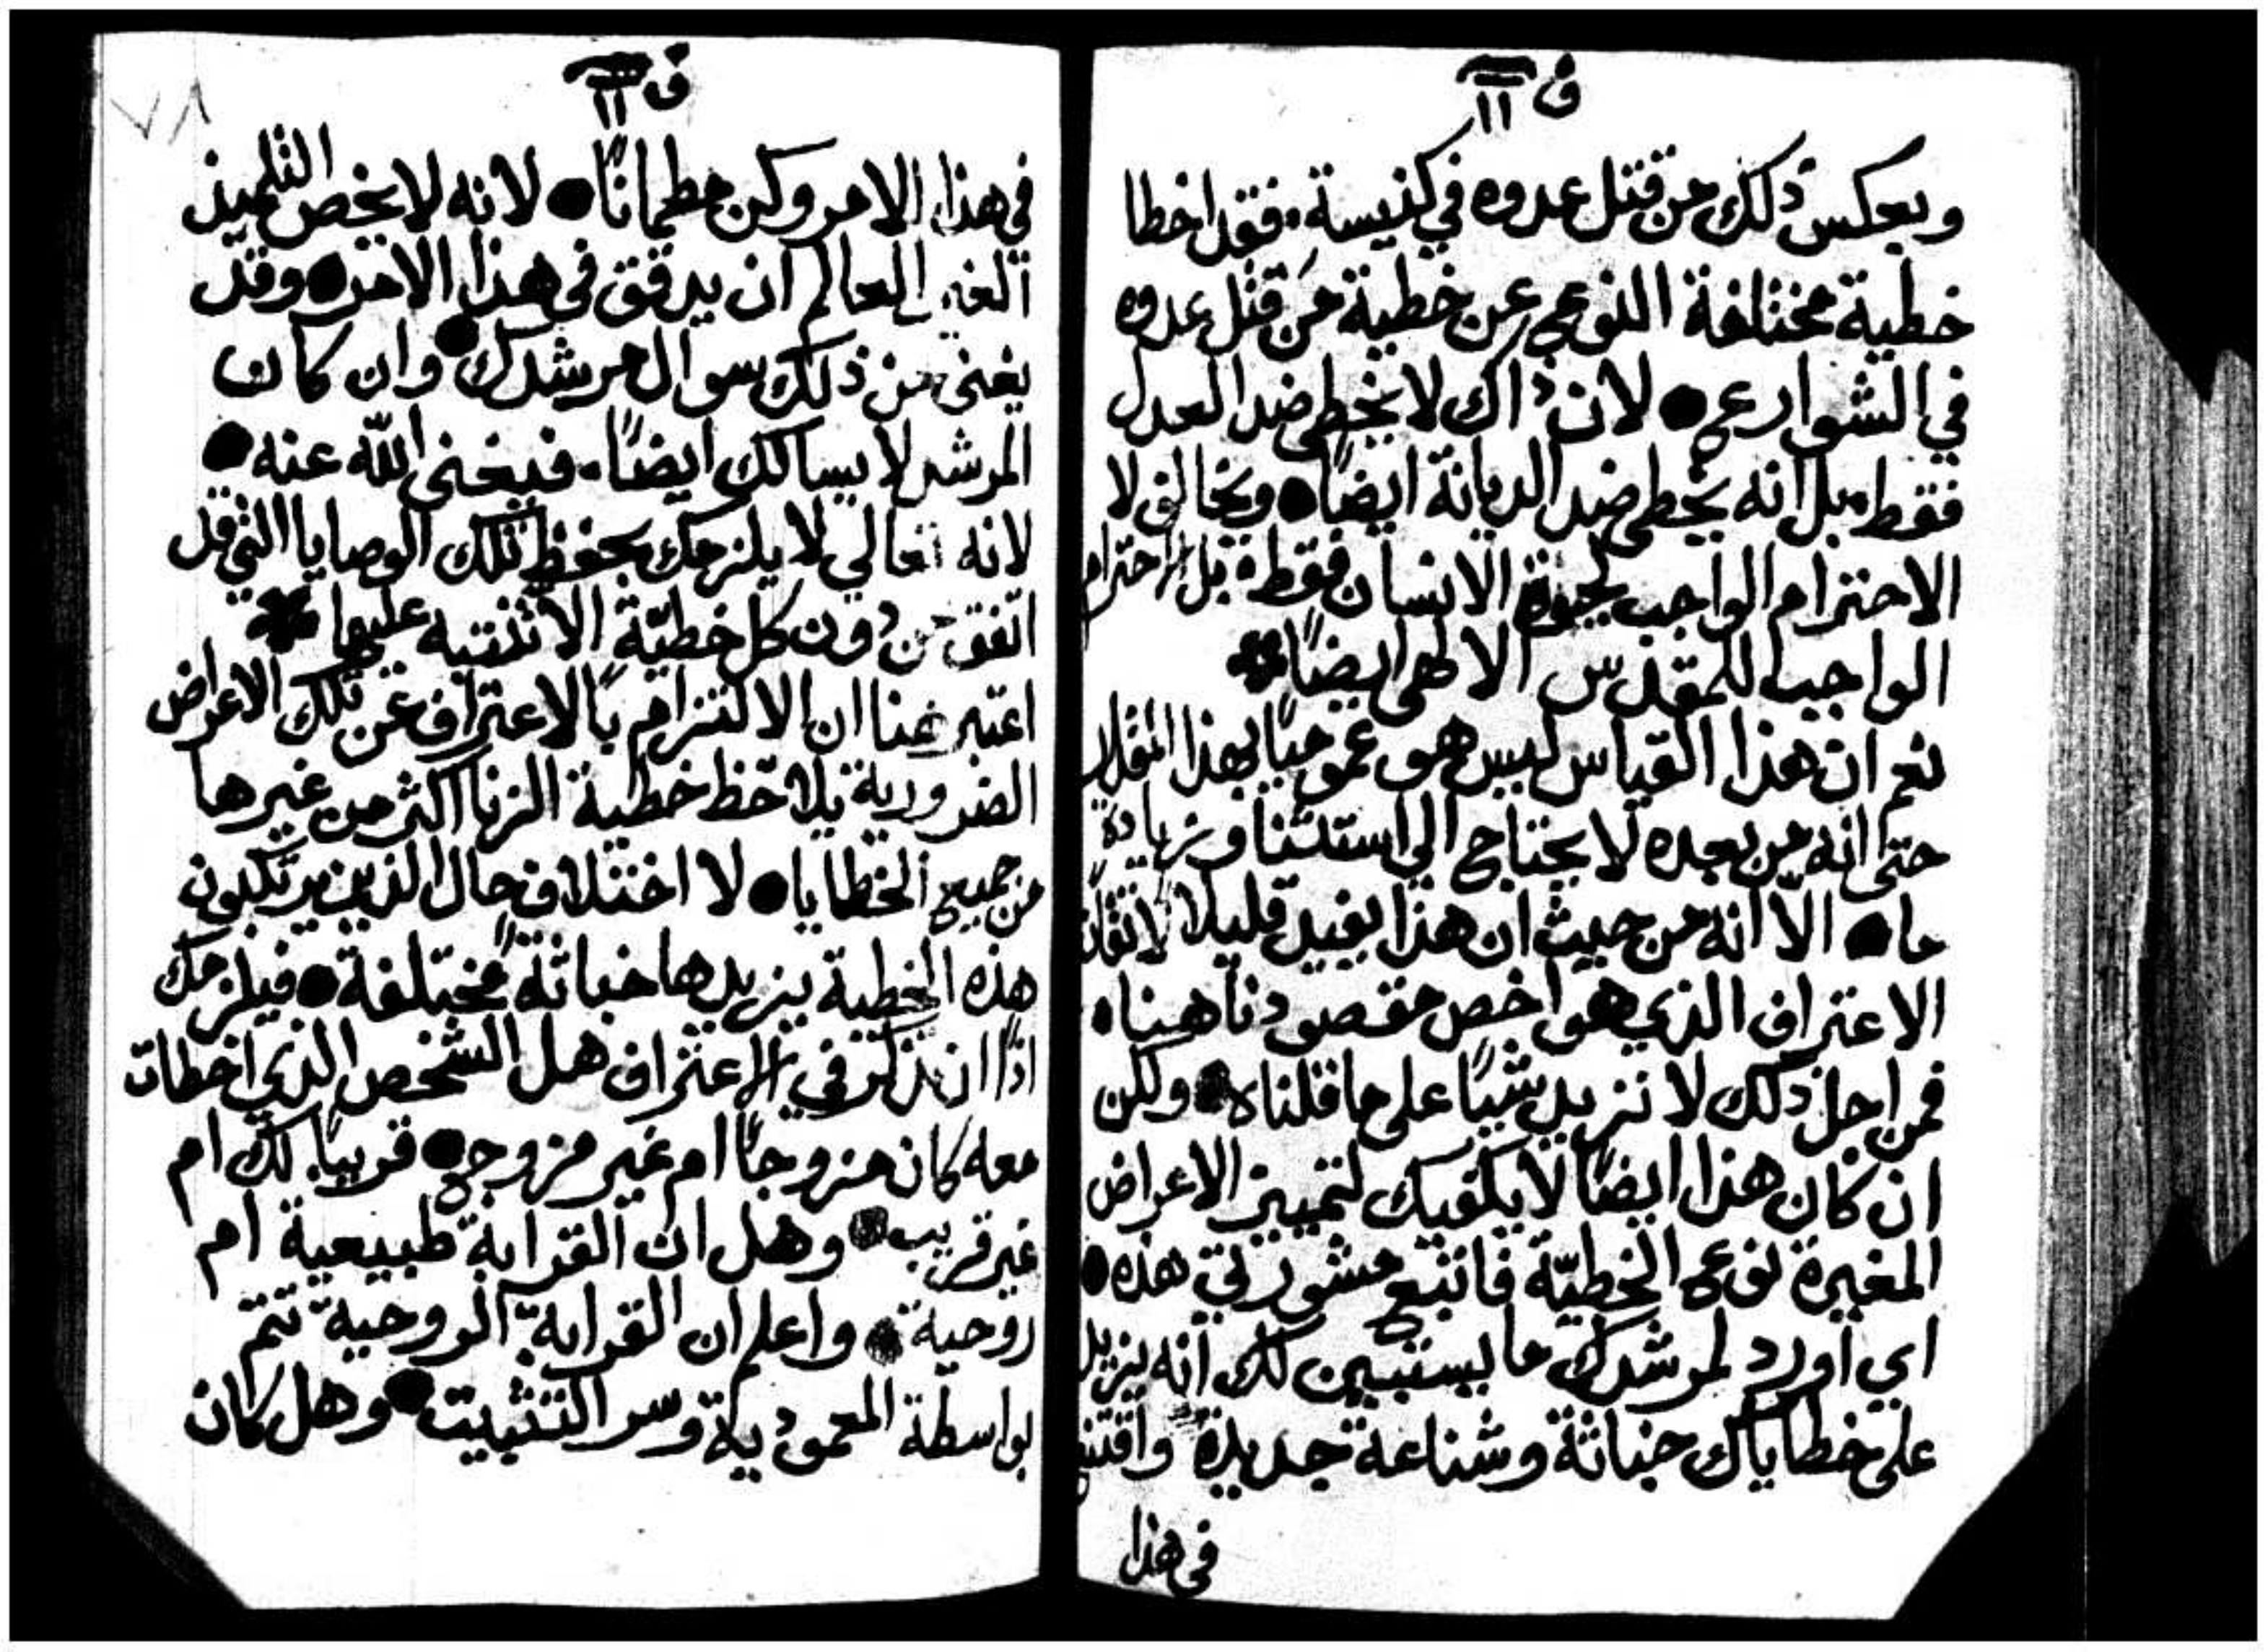 ف ١١
وبعكس ذلك من قتل عدوه في كنيسة. فقد اخطا
خطية مختلفة النوع عن خطية من قتل عدوه
في الشوارع ● لان ذاك لا يخطي ضد العدل
فقط. بل انه يخطي ضد الديانة ايضًا ● ويخالف لا
الاحترام الواجب لحيوة الانسان فقط. بل الاحترام
الواجب للمقدس الالهي ايضًا *
نعم ان هذا القياس ليس هو عموميًا بهذا المقدار
حتى انه من بعده لا يحتاج الي استثنا وزيادة
ما ● الا انه من حيث ان هذا يفيد قليلا لاتقان
الاعتراف الذي هو اخص مقصودنا هنا.
فمن اجل ذلك لا نزيد شيًا على ما قلناه ● ولكن
ان كان هذا ايضًا لا يكفيك لتمييز الاعراض
المغيرة نوع الخطيّة فاتبع مشورتي هذه ●
اي اورد لمرشدك ما يستبين لك انه يزيد
على خطاياك خباثة وشناعة جديدة واقتنع
في هذا
ف ١١
٧٨
في هذا الامر وكن مطمانًا ● لانه لا يخص التلميذ
الغير العالم ان يدقق في هذا الامر ● وقد
يغني من ذلك سوال مرشدك ● وان كان
المرشد لا يسالك ايضًا. فيغني الله عنه ●
لانه تعالي لا يلزمك بحفظ تلك الوصايا التي قد
اتفق من دون كل خطيّة الا تنتبه عليها *
اعتبر هنا ان الالتزام بالاعتراف عن تلك الاعراض
الضرورية يلاحظ خطية الزنا اكثر من غيرها
من جميع الخطايا ● لا اختلاف حال الذين يرتكبون
هذه الخطية يزيدها خباثةً مختلفة ● فيلزمك
اذًا ان تذكر في الاعتراف هل الشخص الذي اخطات
معه كان مزوجًا ام غير مزوج ● قريبًا لك ام
غير قريب ● وهل ان القرابة طبيعية ام
روحية ● واعلم ان القرابة الروحية تتم
بواسطة المعمودية وسر التثبيت ● وهل كان